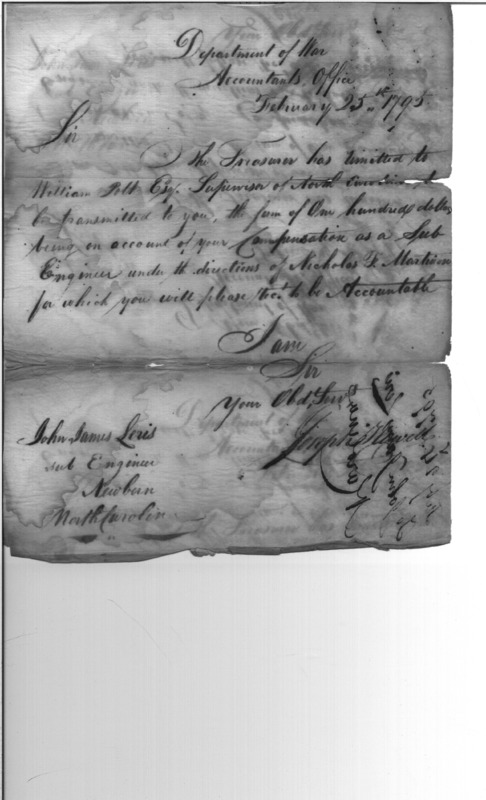 Department of War
Accountants Office
February 25th 1795
Sir
The Treasurer has remitted to
William Polk Esq. Supervisor of North Carolina to
be transmitted to you, the sum of One hundred dollars
being on account of your Compensation as a Sub
Engineer under the directions of Nicholas F. Martinon
for which you will please to be Accountable
I am
Sir
Your Obd. Serv.
Joseph Howell
John James Loris
sub Engineer
Newbern
North Carolina